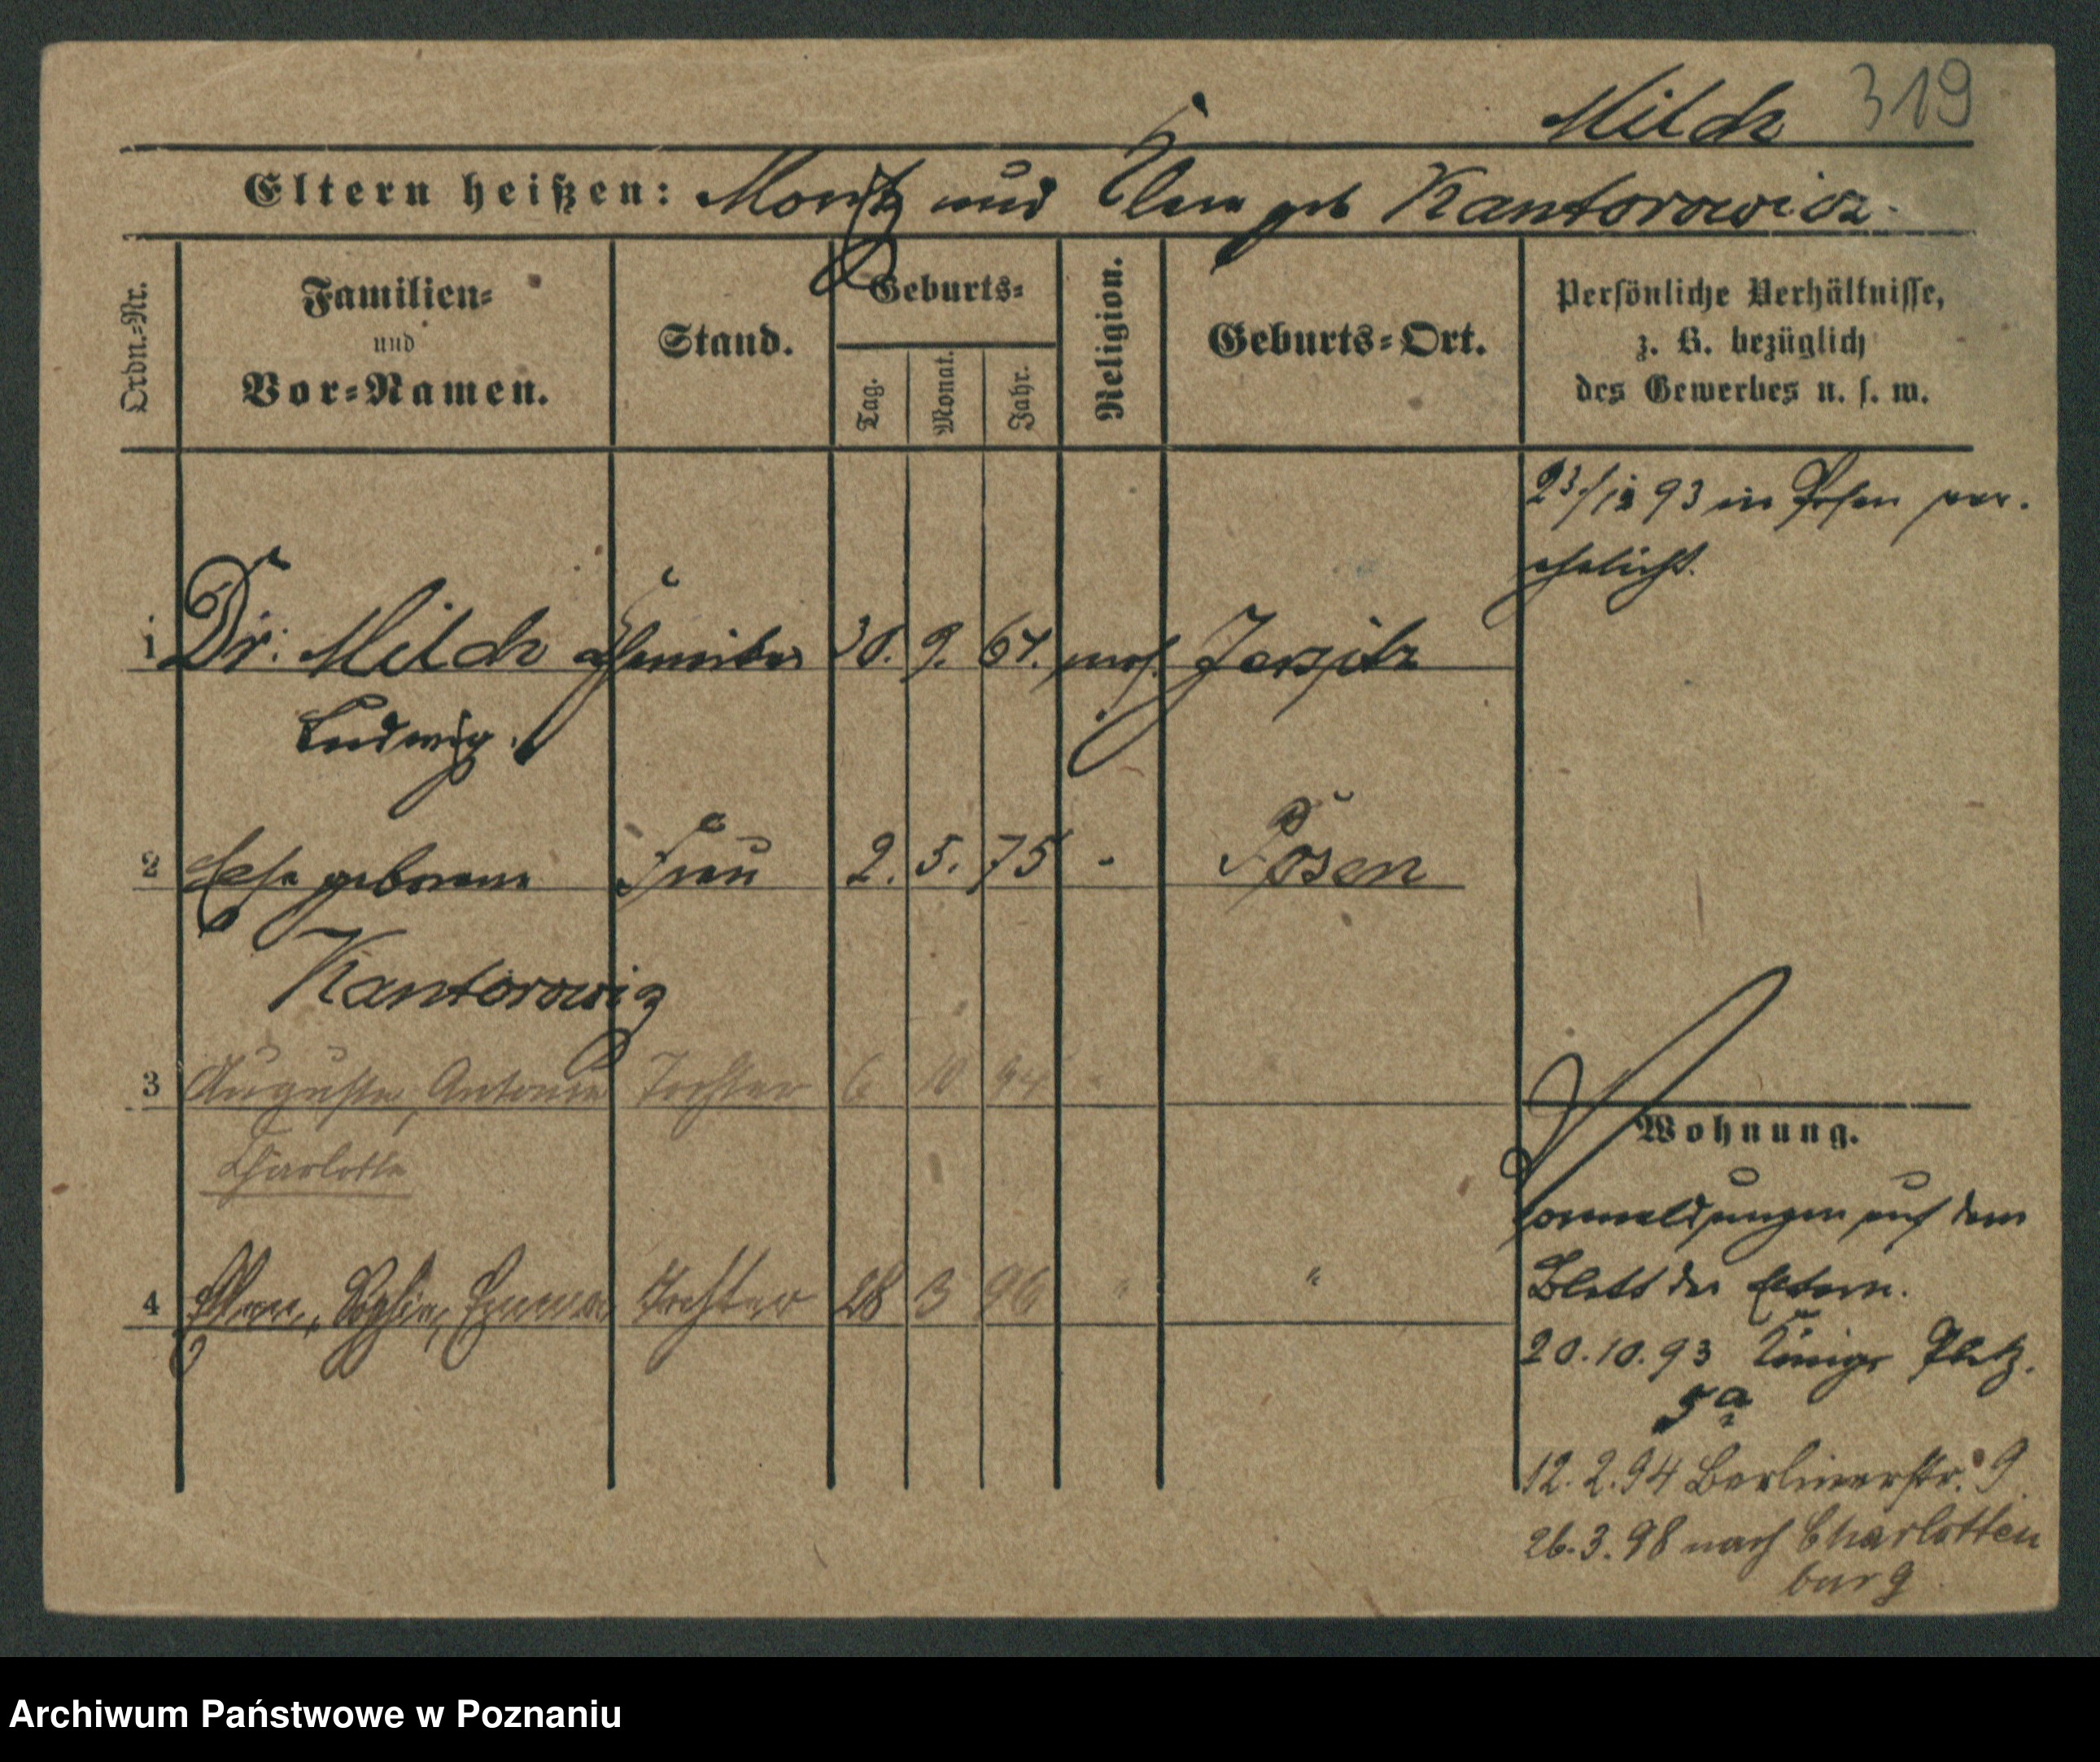 Milch 319
Eltern heißen: Moritz und geb Kantorowicz
Ordn.=Nr.
Familien=
und
Vor=Namen.
Stand.
Geburts=
Tag.
Monat.
Jahr.
Religion.
Geburts=Ort.
Persönliche Verhältnisse,
z. B. bezüglich
des Gewerbes u. s. w.
23/12 93 in Posen ver.
ehelicht.
1 Dr. Milch Chemiker 30. 9. 67. mos. Jerzitz
Ludwig.
2 geborene Frau 2. 5. 75 - Posen
Kantorowiz
3 Auguste, Antonie Tochter 6 10 94
Charlotte
Wohnung.
Vormeldungen auf dem
Blatt der Eltern.
4 Sophie, Emma Tochter 28 3 96 " "
20.10.93 Königs Platz.
5a
12.2.94 Berlinerstr. 9
26.3.98 nach Charlotten
burg
Archiwum Państwowe w Poznaniu